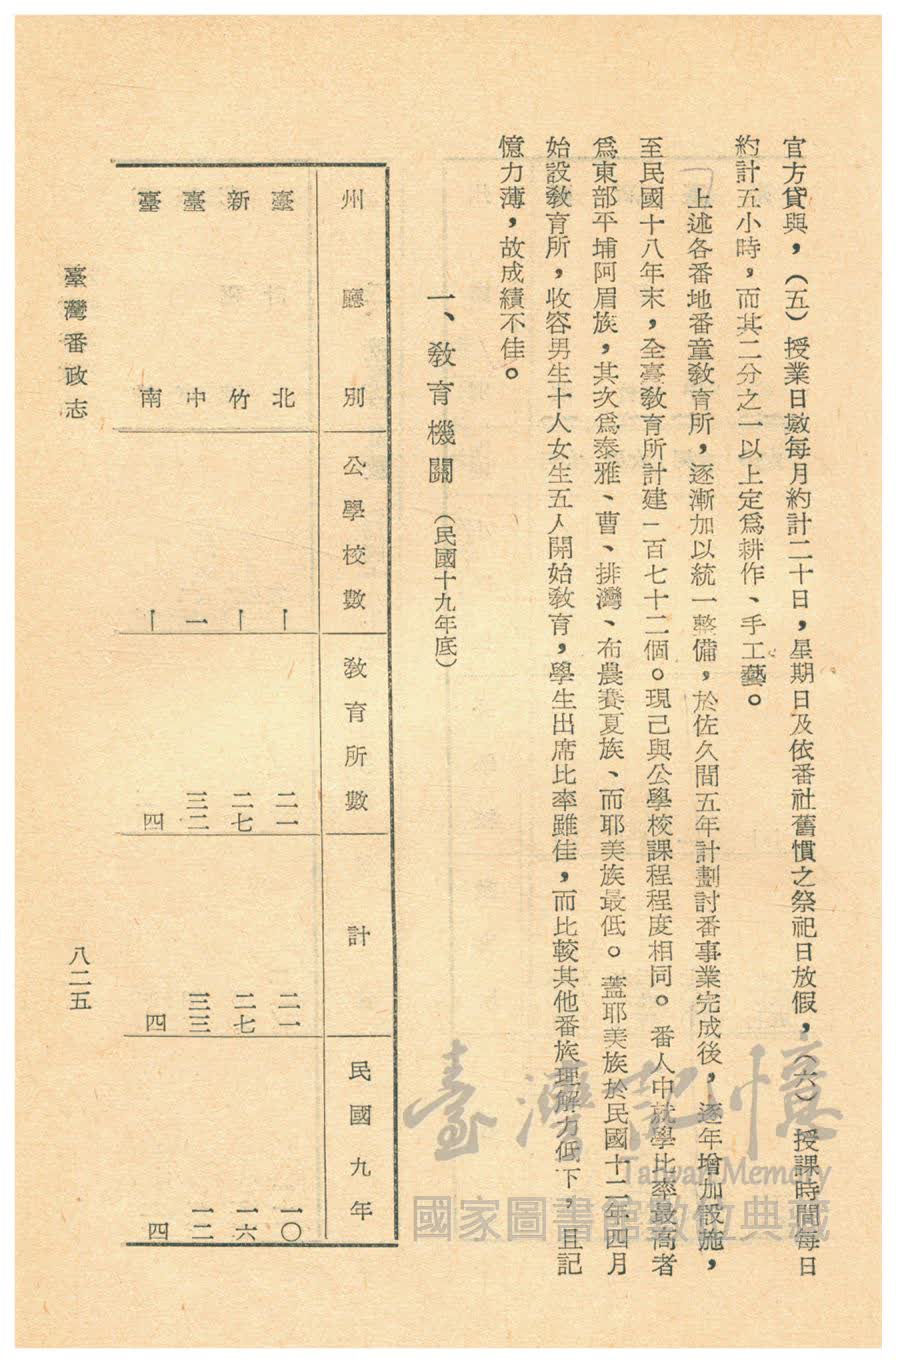 官方貸與，（五）授業日數每月約計二十日，星期日及依番社舊慣之祭祀日放假，（六）授課時間每日
約計五小時，而其二分之一以上定爲耕作、手工藝。
上述各番地番童教育所，逐漸加以統一整備，於佐久間五年計劃討番事業完成後，逐年增加設施，
至民國十八年末，全臺教育所計建一百七十二個。現已與公學校課程程度相同。番人中就學比率最高者
爲東部平埔阿眉族，其次爲泰雅、曹、排灣、布農賽夏族、而耶美族最低。蓋耶美族於民國十二年四月
始設教育所，收容男生十人女生五人開始教育，學生出席比率雖佳，而比較其他番族理解力低下，且記
憶力薄，故成績不佳。
一、教育機關（民國十九年底）
州廳別 公學校數 教育所數 計 民國九年
臺北 ー 二一 二一 一〇
新竹 ー 二七 二七 一六
臺中 一 三二 三三 一二
臺南 ー 四 四 四
臺灣番政志
八二五
臺灣記憶
Taiwan Memory
國家圖書館數位典藏